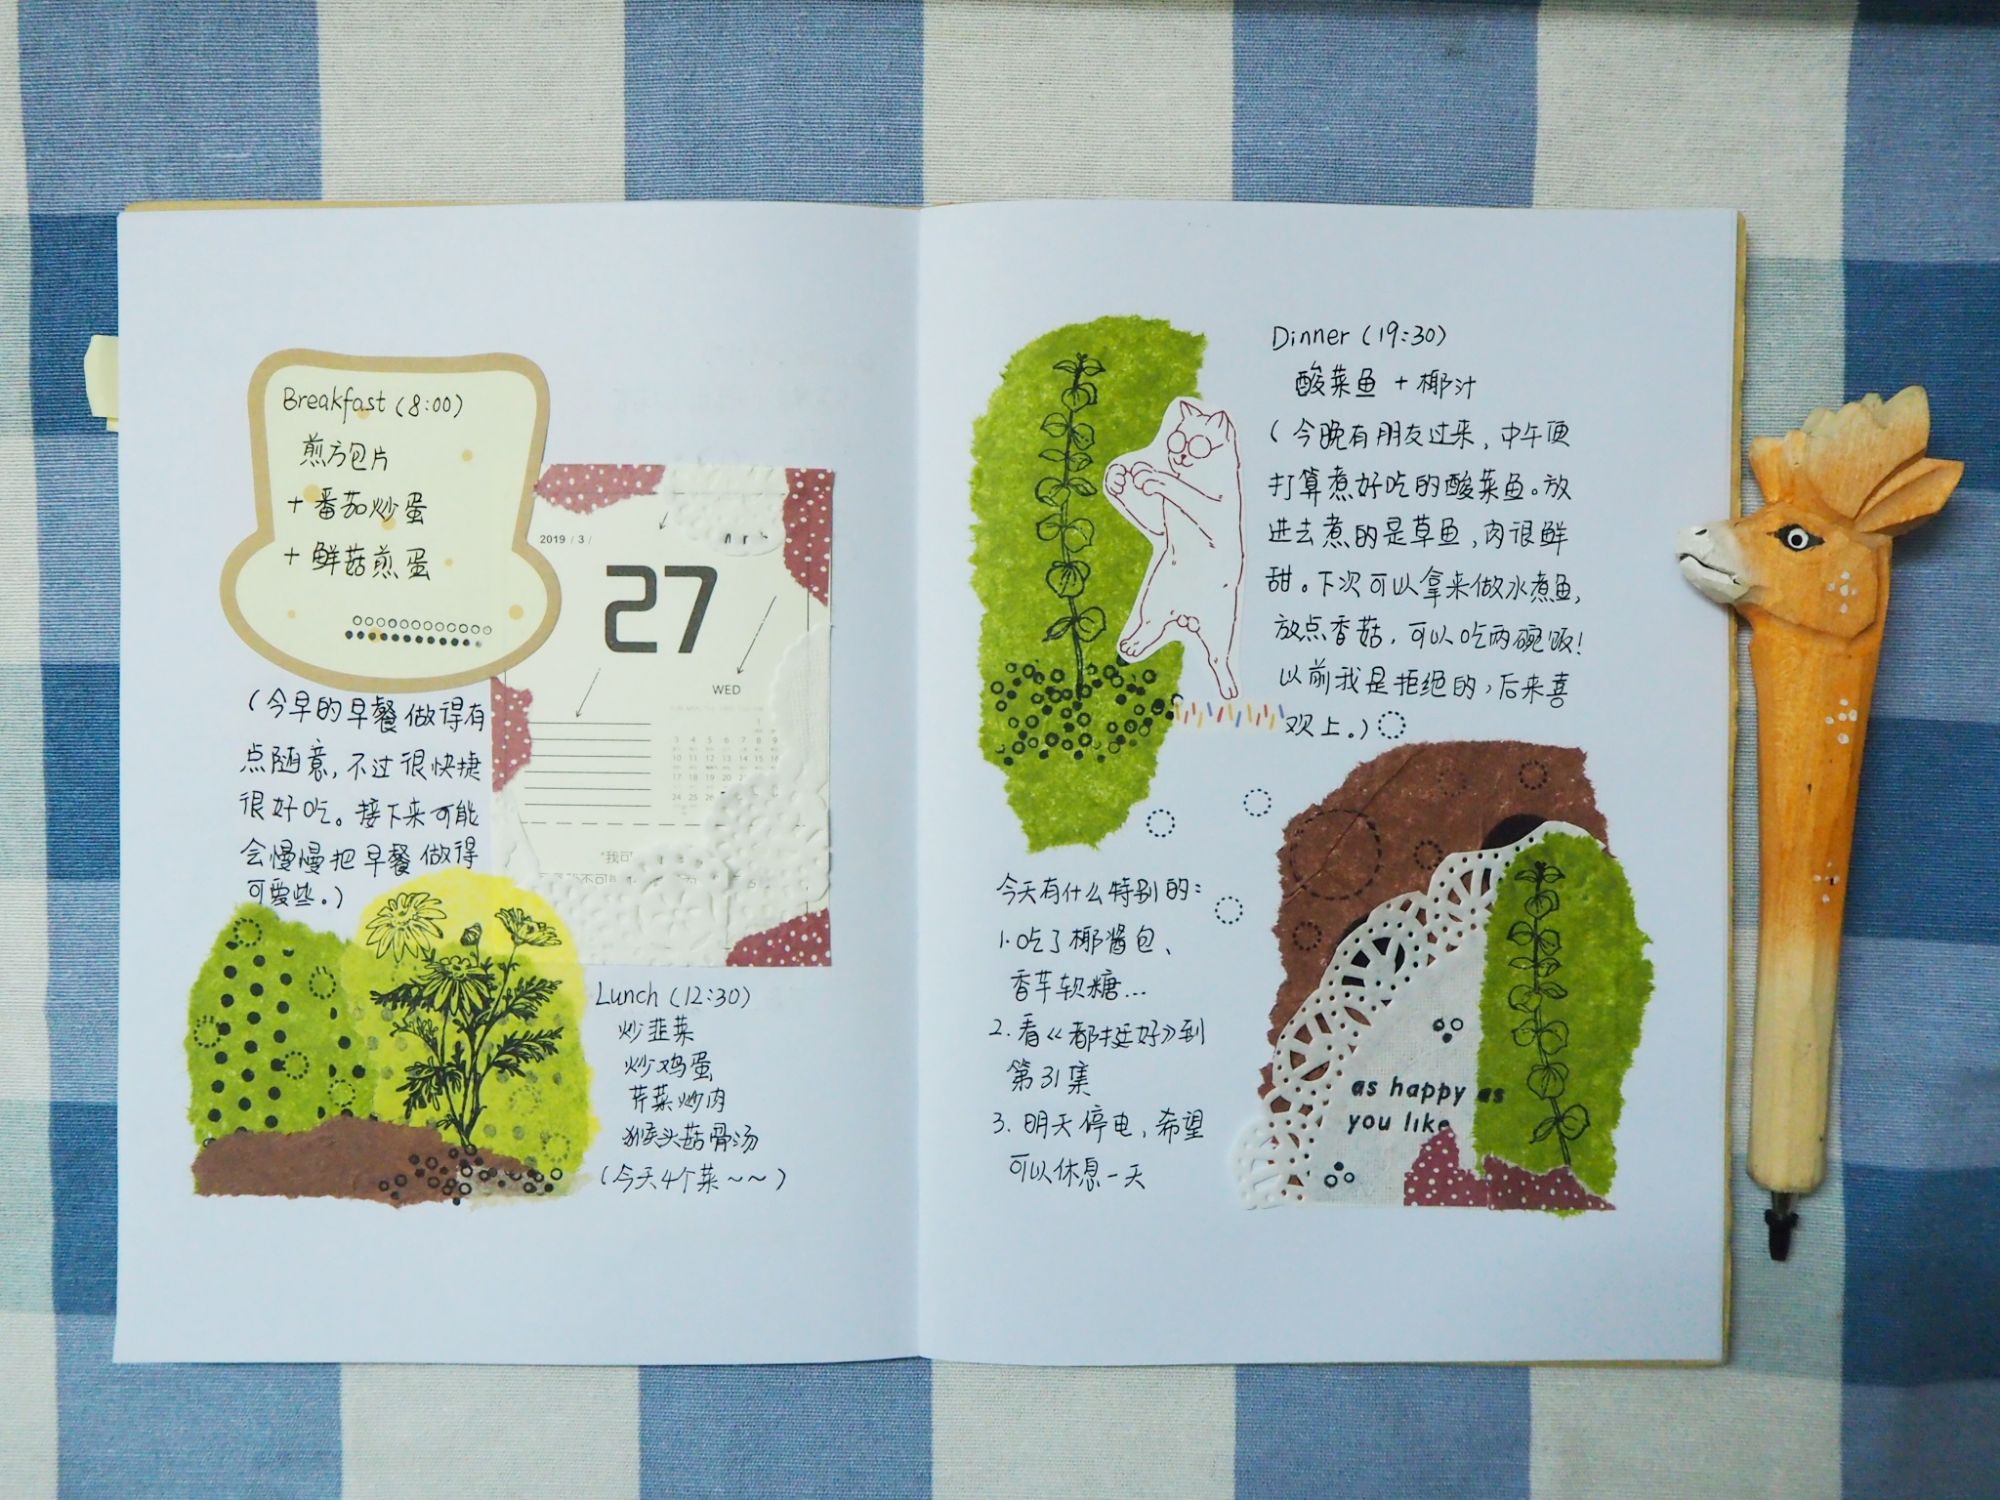 Breakfast (8:00)
煎方包片
+ 番茄炒蛋
+ 鲜菇煎蛋
(今早的早餐做得有
点随意,不过很快捷
很好吃。接下来可能
会慢慢把早餐做得
可爱些。)
2019 / 3 /
27
WED
3 4 5 6 7 8 9
10 11 12 13 14 15
17 18 19 20 21
24 25 26
"我可
不可
Lunch (12:30)
炒韭菜
炒鸡蛋
芹菜炒肉
猴头菇骨汤
(今天4个菜~~)
Dinner (19:30)
酸菜鱼 + 椰汁
(今晚有朋友过来,中午便
打算煮好吃的酸菜鱼。放
进去煮的是草鱼,肉很鲜
甜。下次可以拿来做水煮鱼,
放点香菇,可以吃两碗饭!
以前我是拒绝的,后来喜
欢上。)
今天有什么特别的:
1.吃了椰酱包、
香芋软糖...
2.看《都挺好》到
第31集
3.明天停电,希望
可以休息一天
as happy as
you like